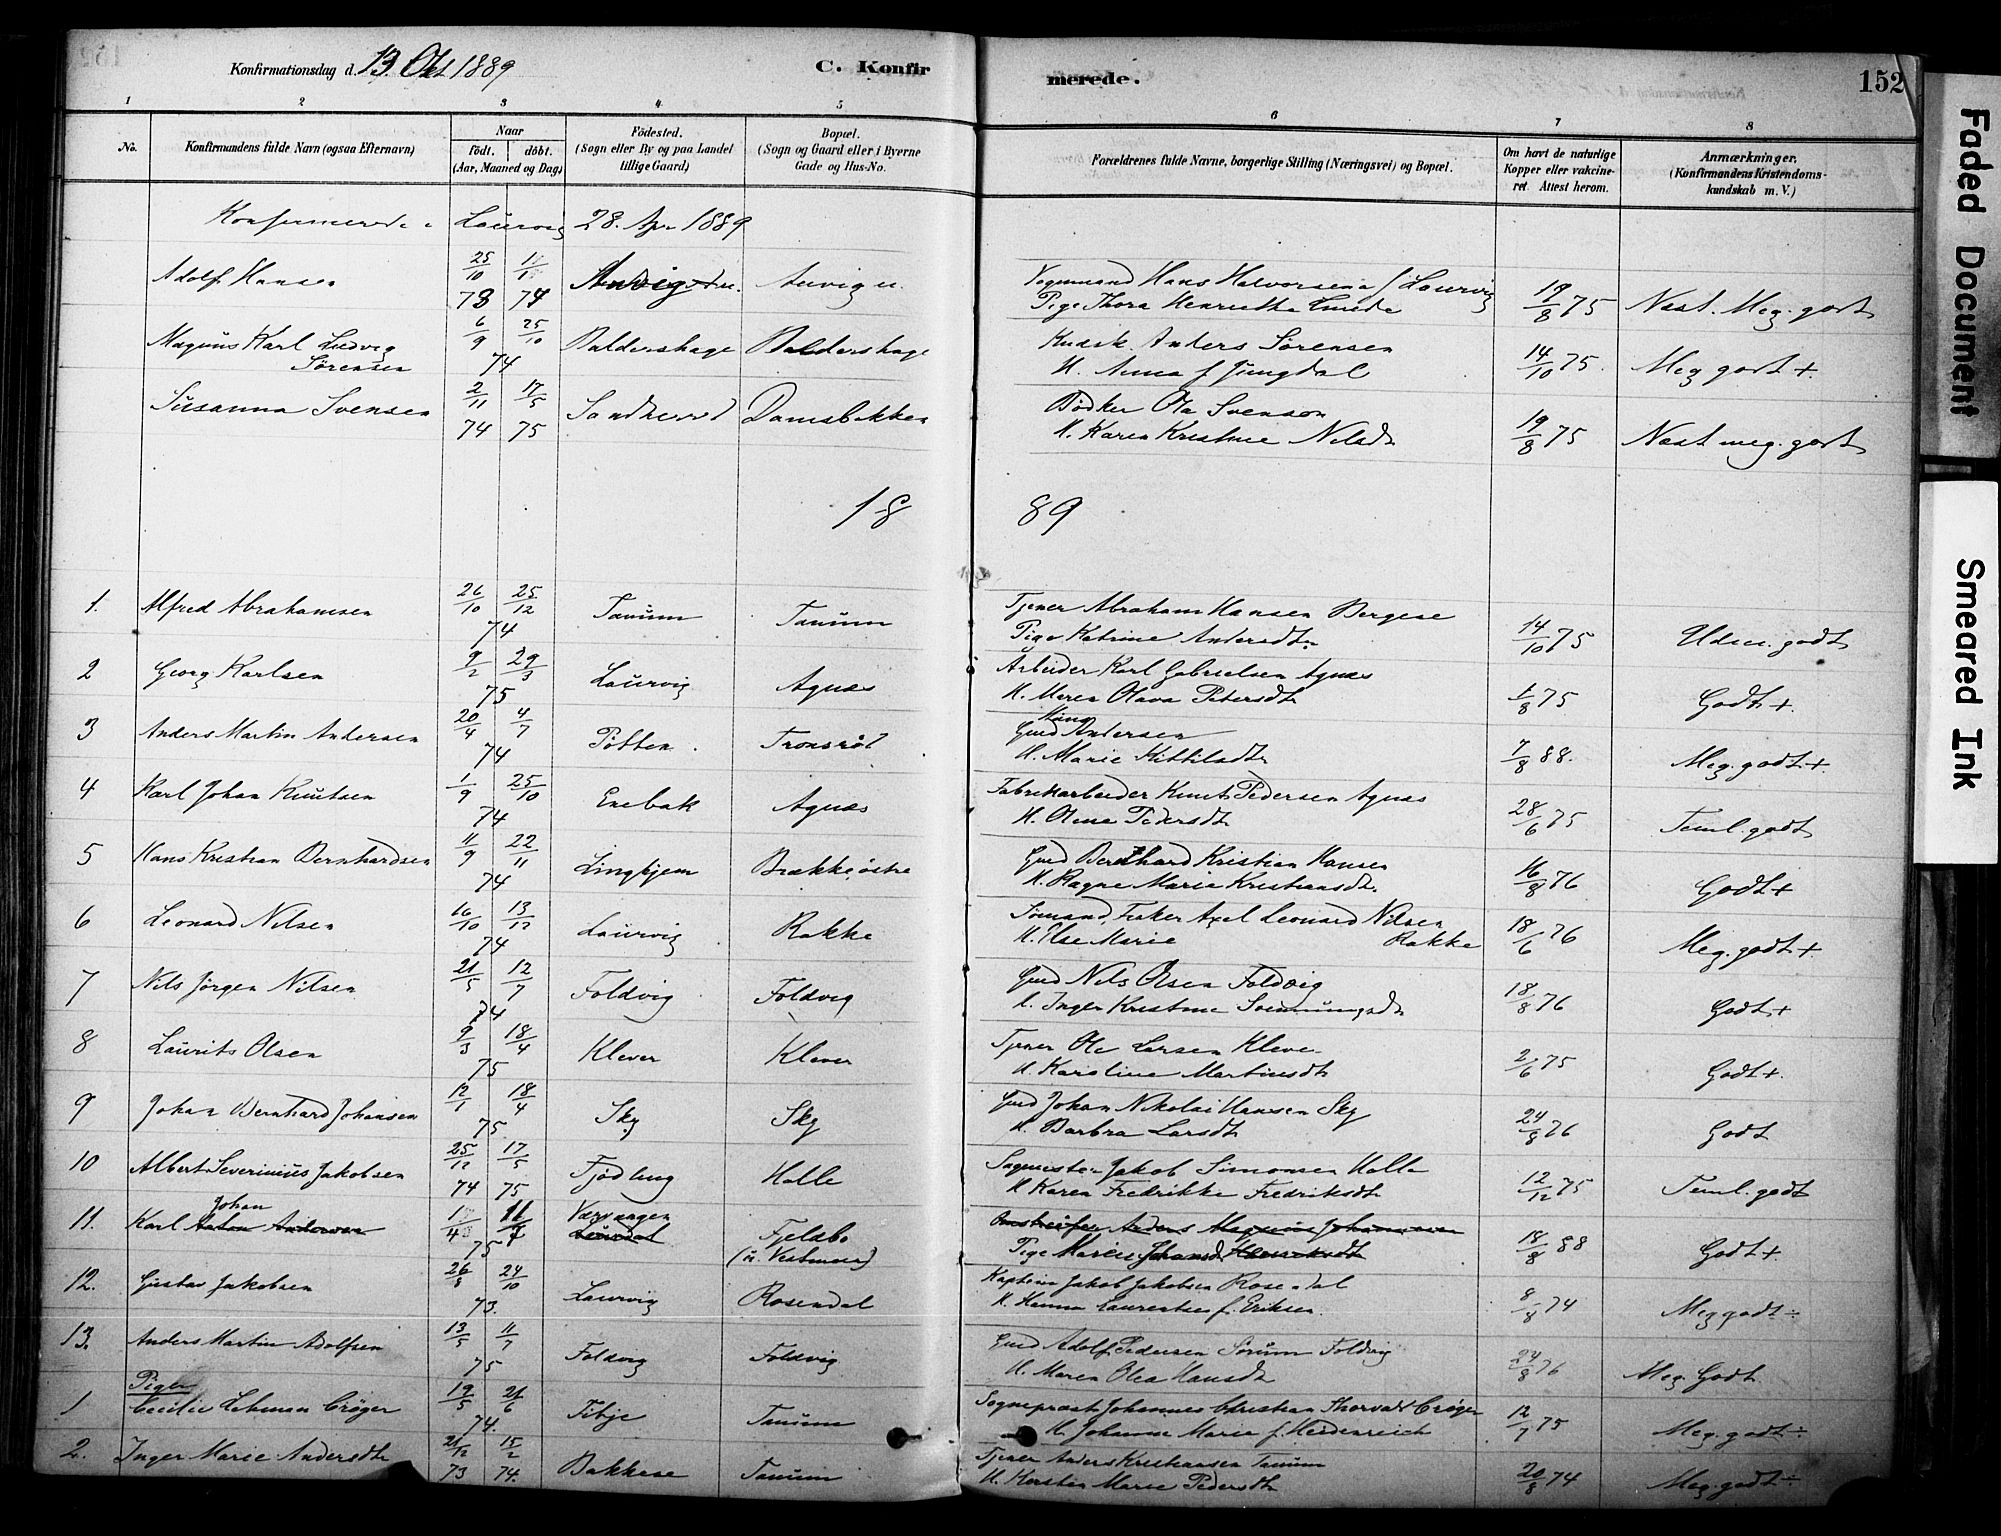 Konfirmationsdag d. 13. Okt 1889 C. Konfir merede. 152
1 2 3 4 5 6 7 8
No. Konfirmandens fulde Navn (ogsaa Efternavn) Naar födt. döbt. (Aar, Maaned og Dag) Födested. (Sogn eller By og paa Landet tillige Gaard) Bopæl. (Sogn og Gaard eller i Byerne Gade og Hus-No. Forældrenes fulde Navne, borgerlige Stilling (Næringsvei) og Bopæl. Om havt de naturlige Kopper eller vakcineret. Attest herom. Anmærkninger. (Konfirmandens Kristendomskundskab m. V.)
Konfirmerede i Laurvig 28. Apr 1889
Adolf Hansen 25/10 73 74 Anvig u. Hans Halvorsen a/ Laurvig 19/8 75 Næst. Meg. godt
Pige Thora Henriette
Magnus Karl Ludvig 6/9 25/10 Baldershage Baldershage Anders Sørensen 14/10 75. Meg godt +
Sørensen 74 H. Anna f
Susanna Svensen 2/11 74 17/5 75 Damsbakken Bødker Ola Svenson 19/8 75 Næst meg. godt
H. Karen Kristine Nilsdt
18 89
1. Alfred Abrahamsen 26/10 25/12 Tanum Tanum Tjener Abraham Hansen 14/10 75 Udm. godt
74 Pige Katrine Andersdt.
2 Georg Karlsen 9/2 29/3 Laurvig Agnæs Arbeider Karl Gabrielsen Agnæs 1/8 75 Godt +
75 H. Maren Olava Petersdt
3 Anders Martin Andersen 20/4 4/7 Potten Tronsrød Gmd Andersen 7/8 88. Meg. godt +
74 H. Marie Kittilsdt
4 Karl Johan Knutsen 1/9 25/10 Enebak Agnæs Fabrikarbeider Knut Pedersen Agnæs 28/6 75 Teml. godt
74 H. Olena Pedersdt
5 Hans Kristian Bernhardsen 11/9 22/11 Linghjem Brækkeøstre Gmd Bernthard Kristian Hansen 16/8 76 Godt +
74 H. Ragne Marie Kristiansdt.
6 Leonard Nilsen 16/10 13/12 Laurvig Rakke Sømand, Fisker Axel Leonard Nilsen 18/6 76 Meg. godt +
74 H. Else Marie Rakke
7 Nils Jørgen Nilsen 21/5 12/7 Foldvig Foldvig Gmd Nils Olsen Foldvig 18/8 76 Godt +
74 H. Inger Kristine
8 Laurits Olsen 9/3 18/4 Klever Klever Tjener Ole Larsen Kleve 2/6 75 Godt +.
75 H. Karoline Martinsdt
9 Johan Bernhard Johansen 12/1 18/4 Sky Sky Gmd Johan Nikolai Hansen Sky 24/8 76 Godt
75 H. Barbra Larsdt
10 Albert Severinius Jakobsen 25/12 74 17/5 75 Tjødling Halle Sagmester Jakob Simonsen Halle 12/12 75 Teml. godt
H Karen Fredrikke Fredriksdt
Johan
11. Karl Anton Andersen Værvagen Fjeldbo Anders Magnus Johannesen 18/8 88 Godt +
75 Pige Maren Johansd.
12. Gustav Jakobsen 26/8 24/10 Laurvig Rosendal Kaptein Jakob Jakobsen Rosendal 8/8 74 Meg godt ÷
73. H. Hanna Laurentses f. Eriksen
13. Anders Martin Adolfsen 13/5 11/7 Foldvig Foldvig Gmd Adolf Pedersen Sørum Foldvig 24/8 76 Meg. Godt
75 H. Maren Olea Hansdt
Piger
1 Cecilie Lehman Crøger 19/5 21/6 Tibje Tanum Sogneprest Johannes Christian Thorvald Crøger 12/7 75 Meg. godt ÷
74. H. Johanna Marie f. Heidenreich
2. Inger Marie Andersdt 21/12 73 15/2 74. Bakkene Tanum Tjener Anders Kristiansen Tanum 20/8 74 Meg. godt ÷
H. Kirsten Marie Pedersdt
Faded Document
Smeared Ink